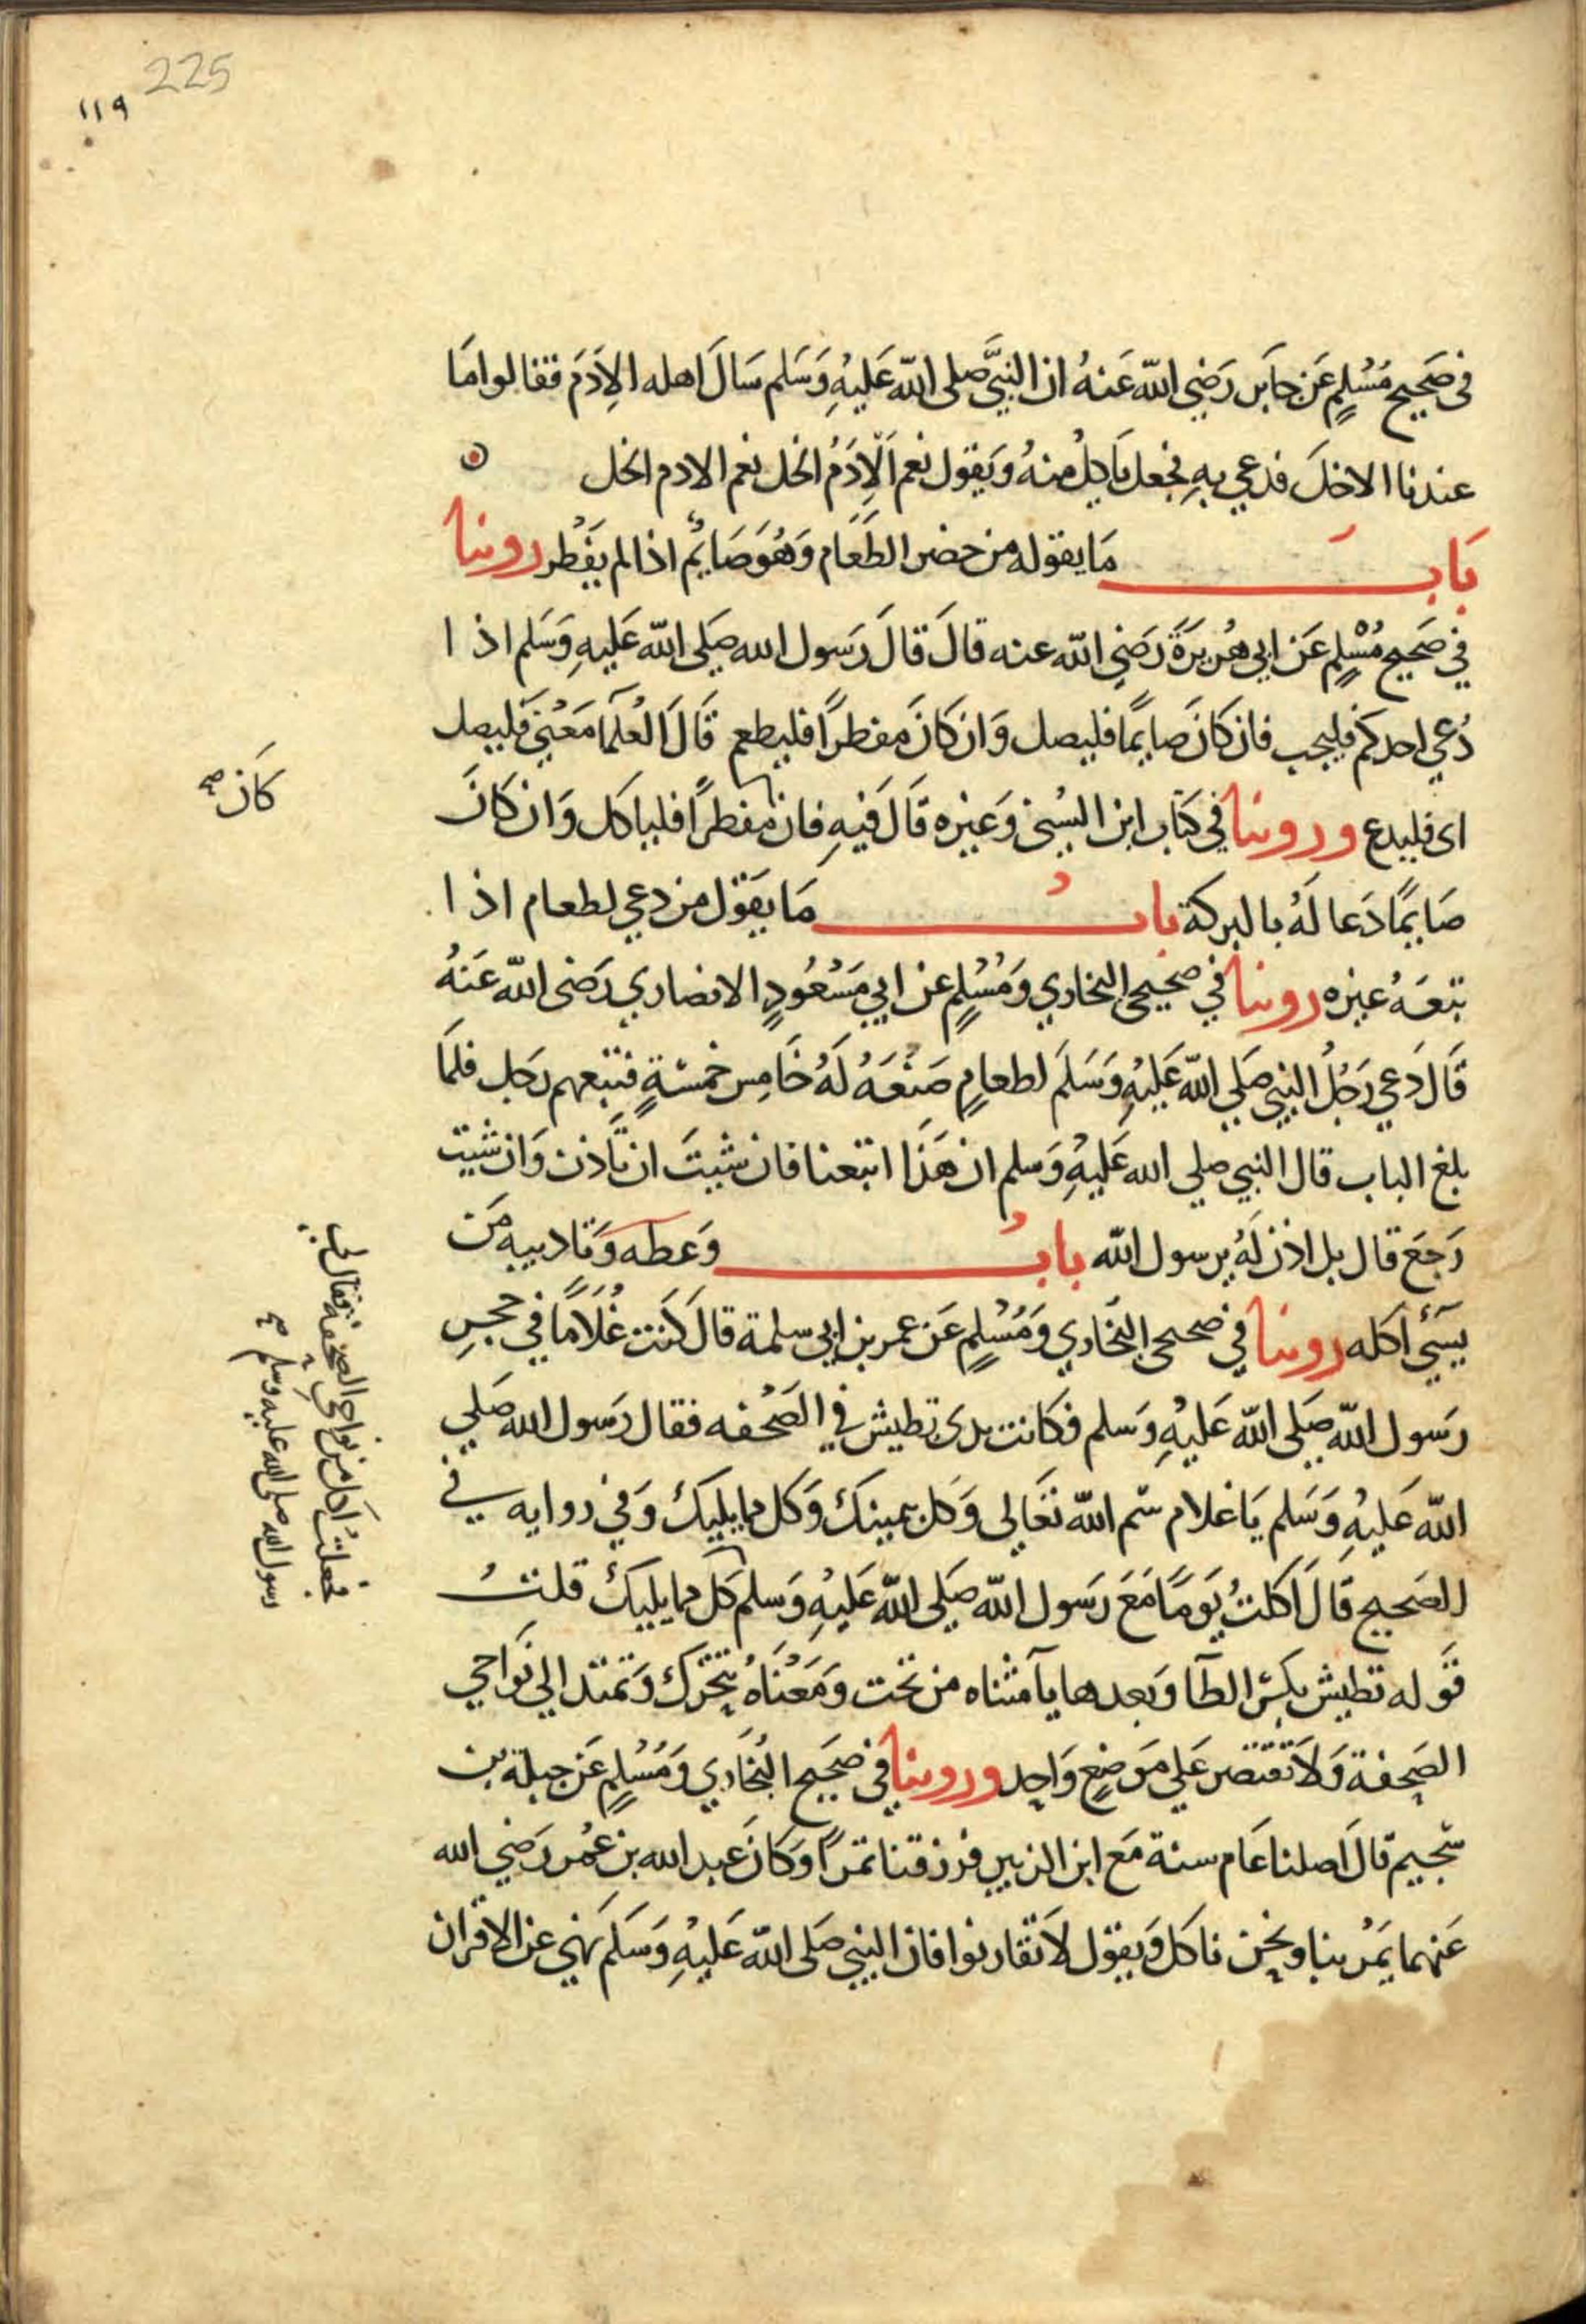 225
١١٩
في صَحَيح مُسْلِمٍ عَن جَابَر رَضِي الله عَنهُ ان النبيَّ صلى الله عَليْهِ وَسَلم سَالَ اهله الاِدَمَ فقالوا مَا
عندنا الاخلَ فدعي بهِ فجعل يَاكلُ منهُ وَيَقول نعم الاِدَمُ الخل نعم الادم الخل
بَابَ مَا يقوله من حضر الطَعَام وَهُوَ صَايمٌ اذا لم يفْطر روينا
في صَحيح مُسْلِمٍ عَن ابي هُريَرَةَ رَضي الله عنه قالَ قالَ رَسول الله صَلى الله عَليهِ وَسَلم اذا
دُعي احدكم فليجب فان كانَ صَايمًا فليصل وَان كانَ مفطراً فليطعم قَالَ العُلمَا مَعْنيَ فليصل
اى فليدع وروينا في كتَاب ابن السُني وَغيره قَالَ فيهِ فان مفطراً فلياكل وَان كانَ
كَانَ صح
صَايمًا دَعا لَهُ بالبركة بابُ مَا يَقوْل من دعي لطعام اذا
تبعَهُ غيره روينا في صحيحي البخاري وَمُسْلِمٍ عن ابي مَسْعُودٍ الانصاري رَضى الله عَنهُ
قَالَ دَعي رَجُلُ النبي صَلي الله عَليْهِ وَسَلَم لطعامٍ صَنْعَهُ لَهُ خَامِس خمسَةٍ فتبعهم رَجل فلمَا
بلغ الباب قال النبي صلي الله عَليْهِ وَسلم ان هَذا اتبعنا فان شيتَ ان تَأذن وَان شيت
رَجَعَ قال بل اذن لَهُ يرسول الله بابُ وَعظه وَتاديبه مَن
يسَيْ اكله روينا في صَحيحي البُخَاري وَمُسْلِمٍ عَن عمر بن ابي سلمة قالَ كنَت غُلاَمًا في حجرِ
رَسول الله صَلى الله عَليْهِ وَسَلم فكانت يدى تطيش في الصَحْفه فقال رَسول الله صَلي
الله عَليْهِ وَسَلم يَا غلام سَم الله تعَالي وَكل بيمينكَ وَكل مما يليكَ وَفي روايه في
الصَحيح قَالَ اكلتُ يَومًا مَعَ رَسول الله صَلى الله عَليْهِ وَسلم كل مما يليكَ قلتُ
فجعلتُ اكل من نواحي الصحفة فقال لي
رسول الله صلى الله عليه وسلم صح
قَوله تطيش بكسر الطآ وَبعدها يآ مثناه من تحت وَمَعْنَاهُ تتحَرَك وَتمتد الي نَوَاحي
الصَحِفة وَلاَ تقتصر عَلي مَوضعٍ وَاحِد وروينا في صَحَيح البُخَاري وَمُسْلِمٍ عَن جبلة بن
سُحيم قالَ اصلنا عَام سنة مَع ابن الزبير فرزقنا تمراً وَكانَ عَبد الله بن عُمر رَضي الله
عَنهما يَمُر بنا ونحن ناكل وَيقوْل لاَ تقارنوا فان النبي صَلى الله عَليْهِ وَسَلم نهي عن الاقران